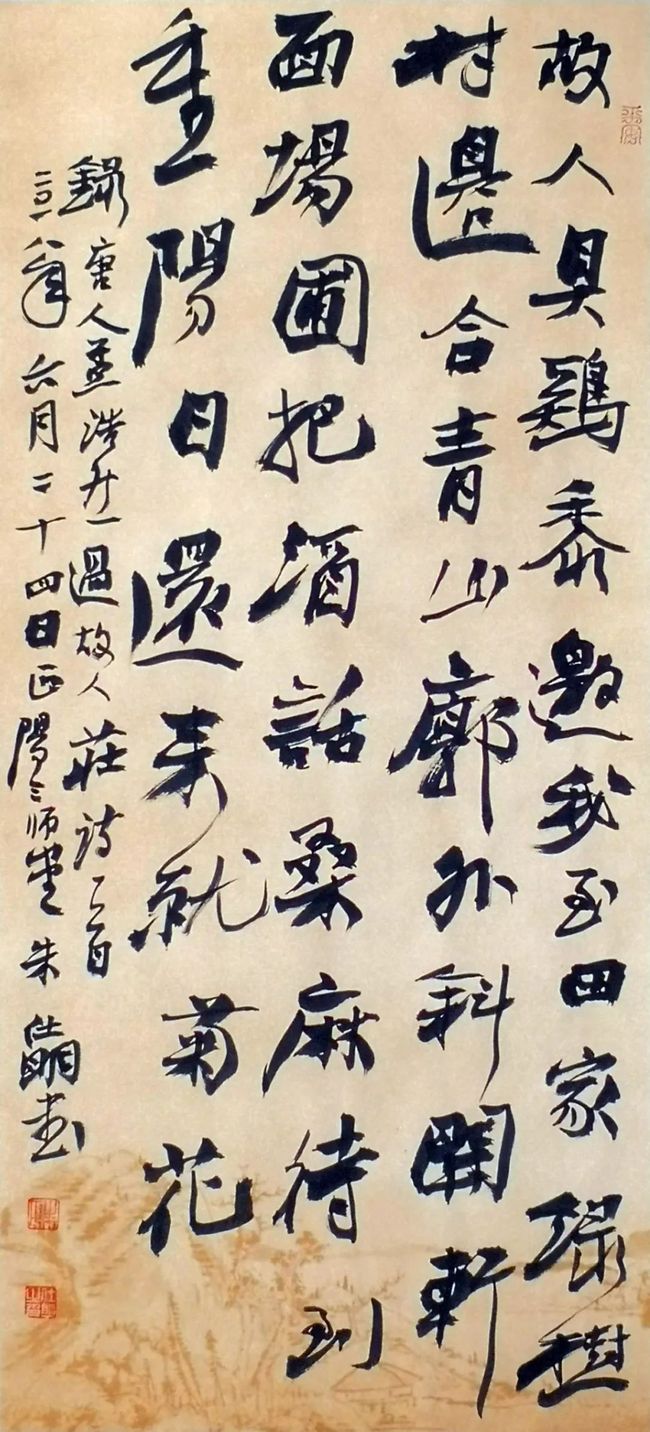 故人具鷄黍邀我至田家綠樹
村邊合青山廓外斜開軒
面場圃把酒話桑麻待到
重陽日還來就菊花
錄唐人孟浩然過故人莊诗一首
二〇一八年六月二十四日正陽三师堂朱书